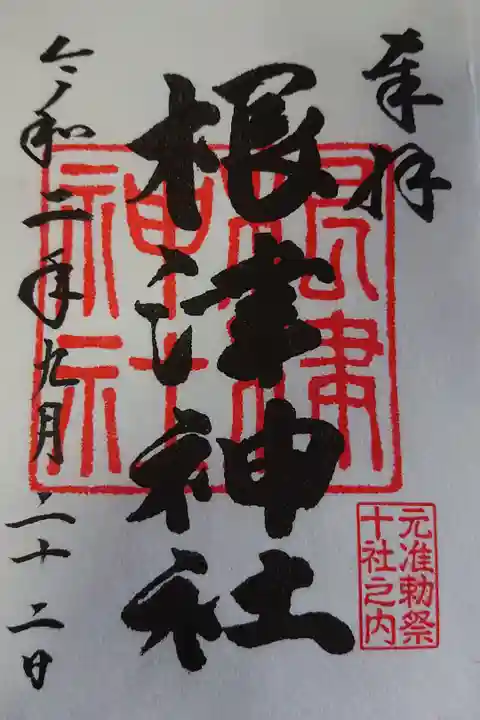 奉拝
根津神社
根津
神社
元准勅祭
十社之内
令和二年九月二十二日